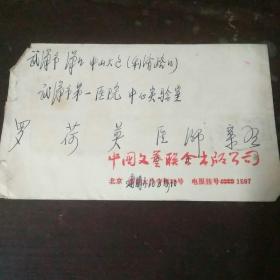 武汉市 汉口 中山大道(利济路口)
武汉市第一医院 中心实验室
罗荷英医师亲启
中国文艺联合出版公司
北京 号 电报挂号 1597